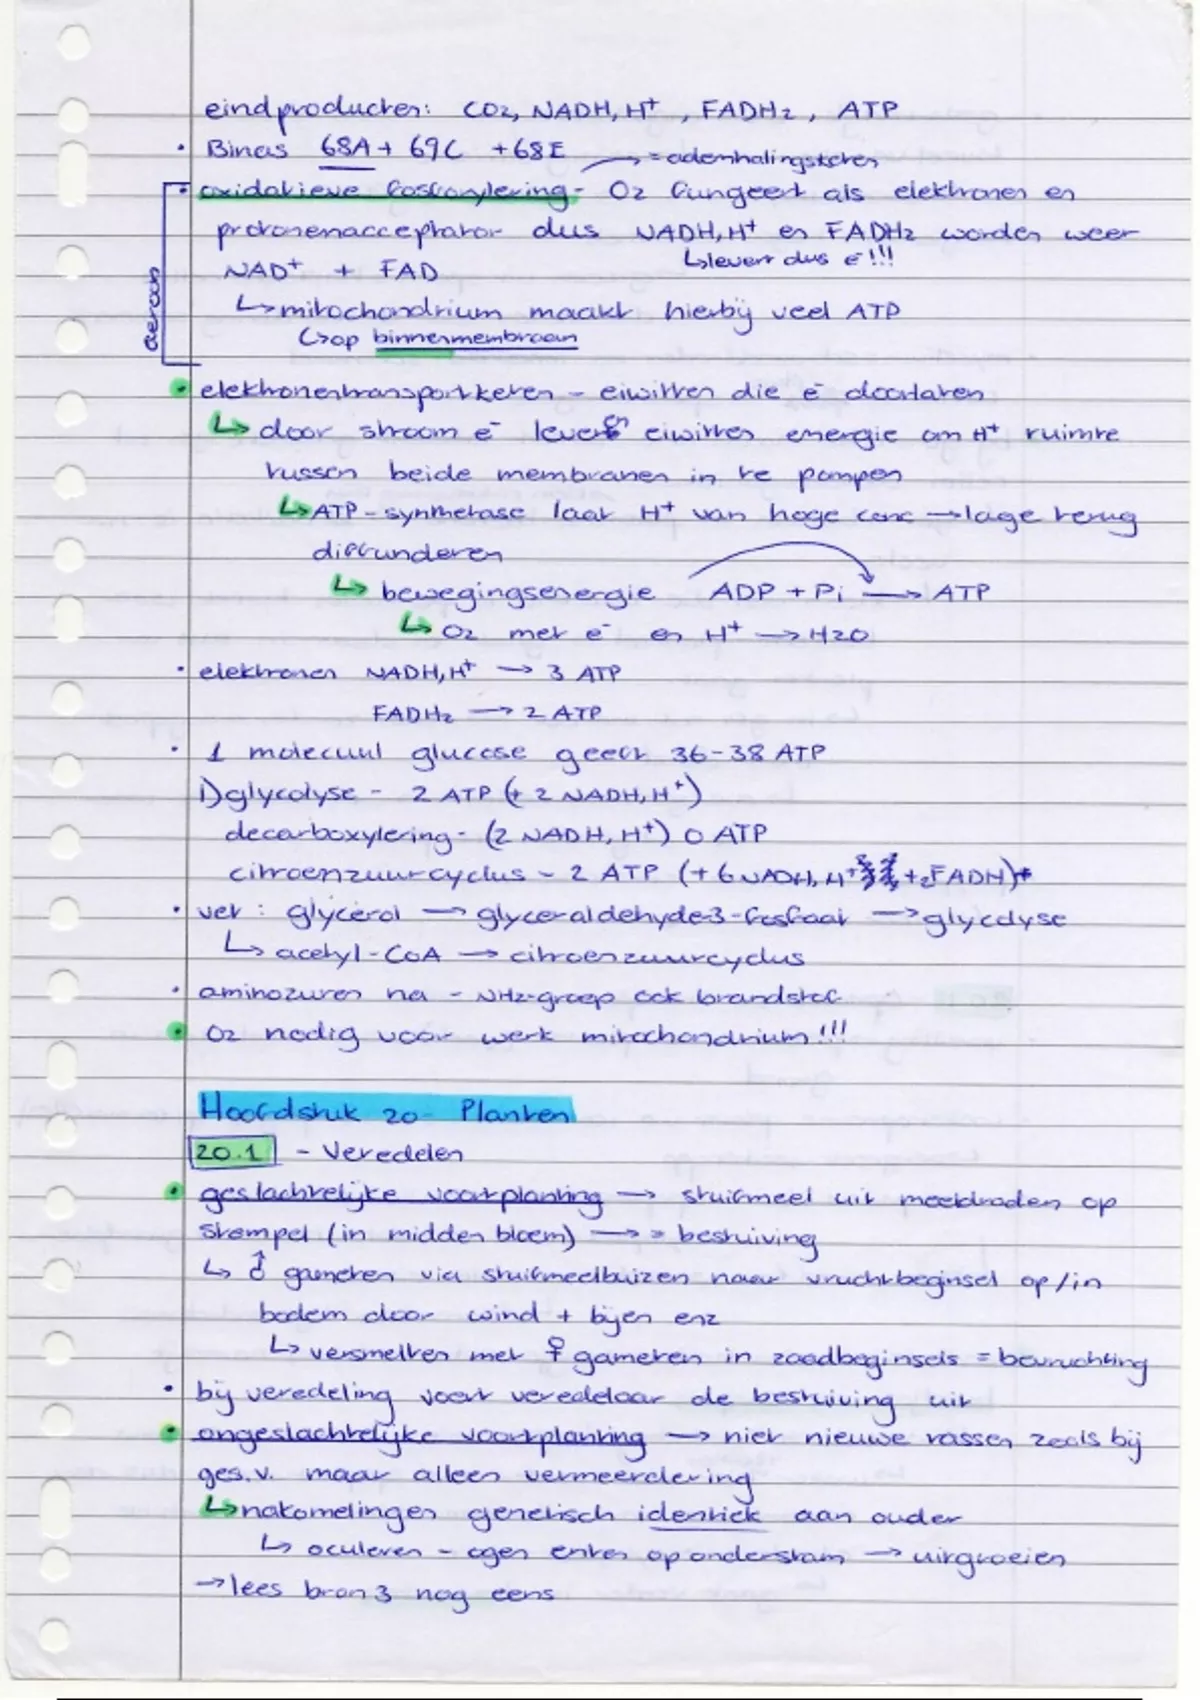 eindproducten: CO2, NADH,H+, FADH2, ATP
• Binas 68A + 69C + 68E → = ademhalingsketen
• oxidatieve fosforylering - O2 fungeert als elektronen en
protonenacceptator dus NADH,H+ en FADH2 worden weer
↳ levert dus e-!!!
NAD+ + FAD
aeroob
↳ mitochondrium maakt hierbij veel ATP
↳ op binnenmembraan
• elektronentransportketen - eiwitten die e- doorlaten
↳ door stroom e- leveren eiwitten energie om H+ ruimte
tussen beide membranen in te pompen
↳ ATP-synthetase laat H+ van hoge conc → lage terug
diffunderen
↳ bewegingsenergie ADP + Pi → ATP
↳ O2 met e- en H+ → H2O
• elektronen NADH,H+ → 3 ATP
FADH2 → 2 ATP
• 1 molecuul glucose geeft 36-38 ATP
1) glycolyse - 2 ATP (+ 2 NADH,H+)
decarboxylering - (2 NADH,H+) 0 ATP
citroenzuurcyclus - 2 ATP (+ 6 NADH,H+ +2FADH)
• vet: glycerol → glyceraldehyde-3-fosfaat → glycolyse
↳ acetyl-CoA → citroenzuurcyclus
• aminozuren na - NH2-groep ook brandstof
• O2 nodig voor werk mitochondrium!!!
Hoofdstuk 20 - Planten
20.1 - Veredelen
• geslachtelijke voortplanting → stuifmeel uit meeldraden op
stempel (in midden bloem) → = bestuiving
↳ ♂ gameten via stuifmeelbuizen naar vruchtbeginsel op/in
bodem door wind + bijen enz
↳ versmelten met ♀ gameten in zaadbeginsels = bevruchting
• bij veredeling voert veredelaar de bestuiving uit
• ongeslachtelijke voortplanting → niet nieuwe rassen zoals bij
ges.v. maar alleen vermeerdering
↳ nakomelingen genetisch identiek aan ouder
↳ oculeren - ogen enten op onderstam → uitgroeien
→ lees bron 3 nog eens